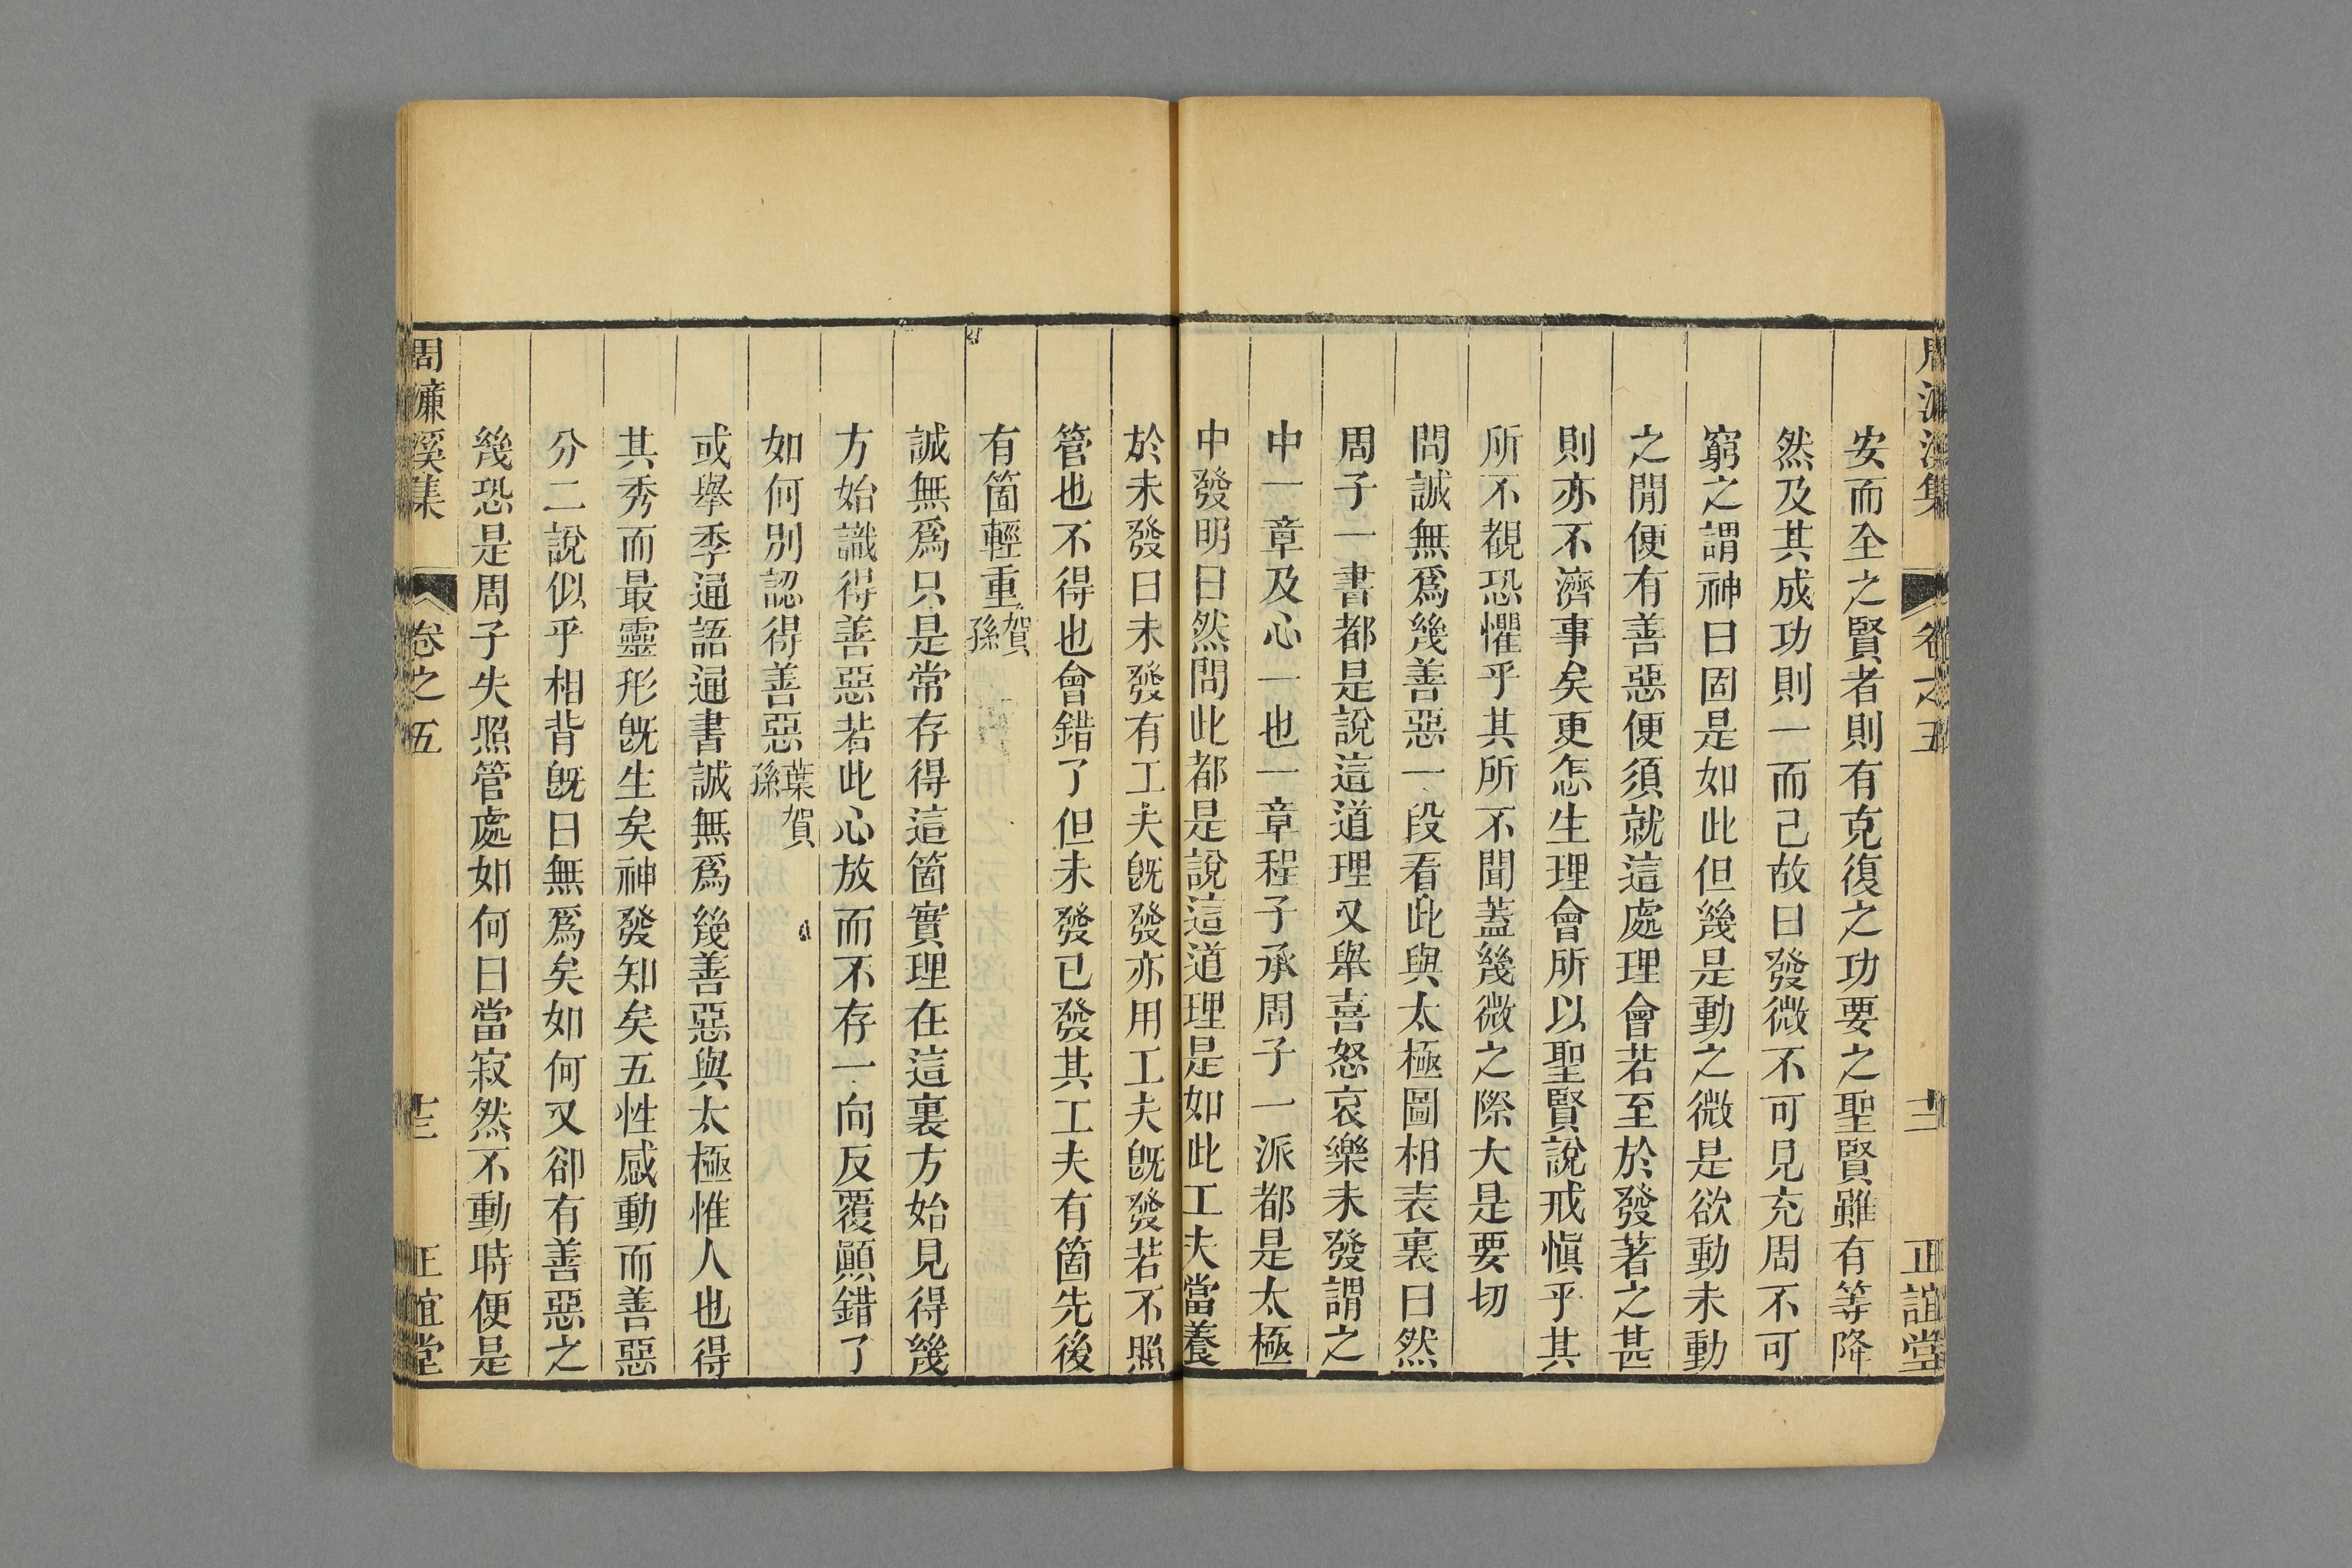 周濂溪集 卷之五 十二 正誼堂
安而全之賢者則有克復之功要之聖賢雖有等降
然及其成功則一而已故曰發微不可見充周不可
窮之謂神曰固是如此但幾是動之微是欲動未動
之閒便有善惡便須就這處理會若至於發著之甚
則亦不濟事矣更怎生理會所以聖賢說戒愼乎其
所不覩恐懼乎其所不聞蓋幾微之際大是要切
問誠無爲幾善惡一段看此與太極圖相表裏曰然
周子一書都是說這道理又舉喜怒哀樂未發謂之
中一章及心一也一章程子承周子一派都是太極
中發明曰然問此都是說這道理是如此工夫當養
於未發曰未發有工夫既發亦用工夫既發若不照
管也不得也會錯了但未發已發其工夫有箇先後
有箇輕重賀孫
誠無爲只是常存得這箇實理在這裏方始見得幾
方始識得善惡若此心放而不存一向反覆顚錯了
如何別認得善惡葉賀孫
或舉季通語通書誠無爲幾善惡與太極惟人也得
其秀而最靈形既生矣神發知矣五性感動而善惡
分二說似乎相背既曰無爲矣如何又卻有善惡之
幾恐是周子失照管處如何曰當寂然不動時便是
周濂溪集 卷之五 十三 正誼堂